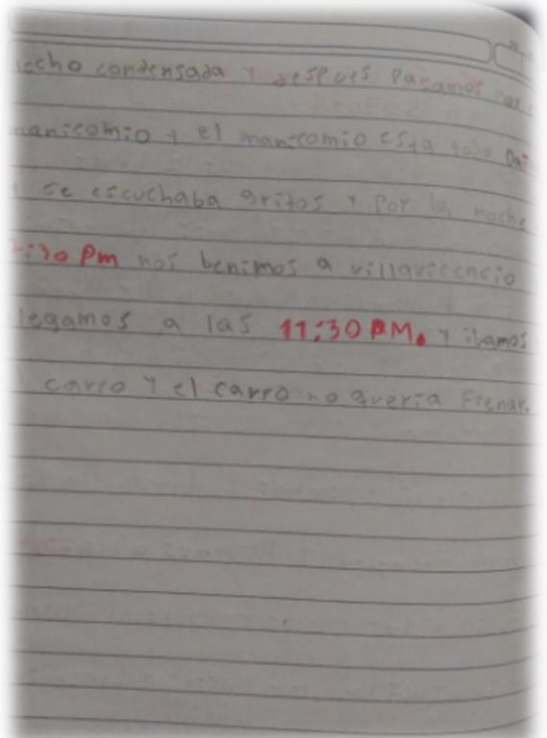 condensada y despues Pasamos
manicomio y el manicomio esta todo
se escuchaba gritos y Por la noche
:30 Pm nos benimos a villavicencio
legamos a las 11:30 PM. y ibamos
carro y el carro no queria Frenar.